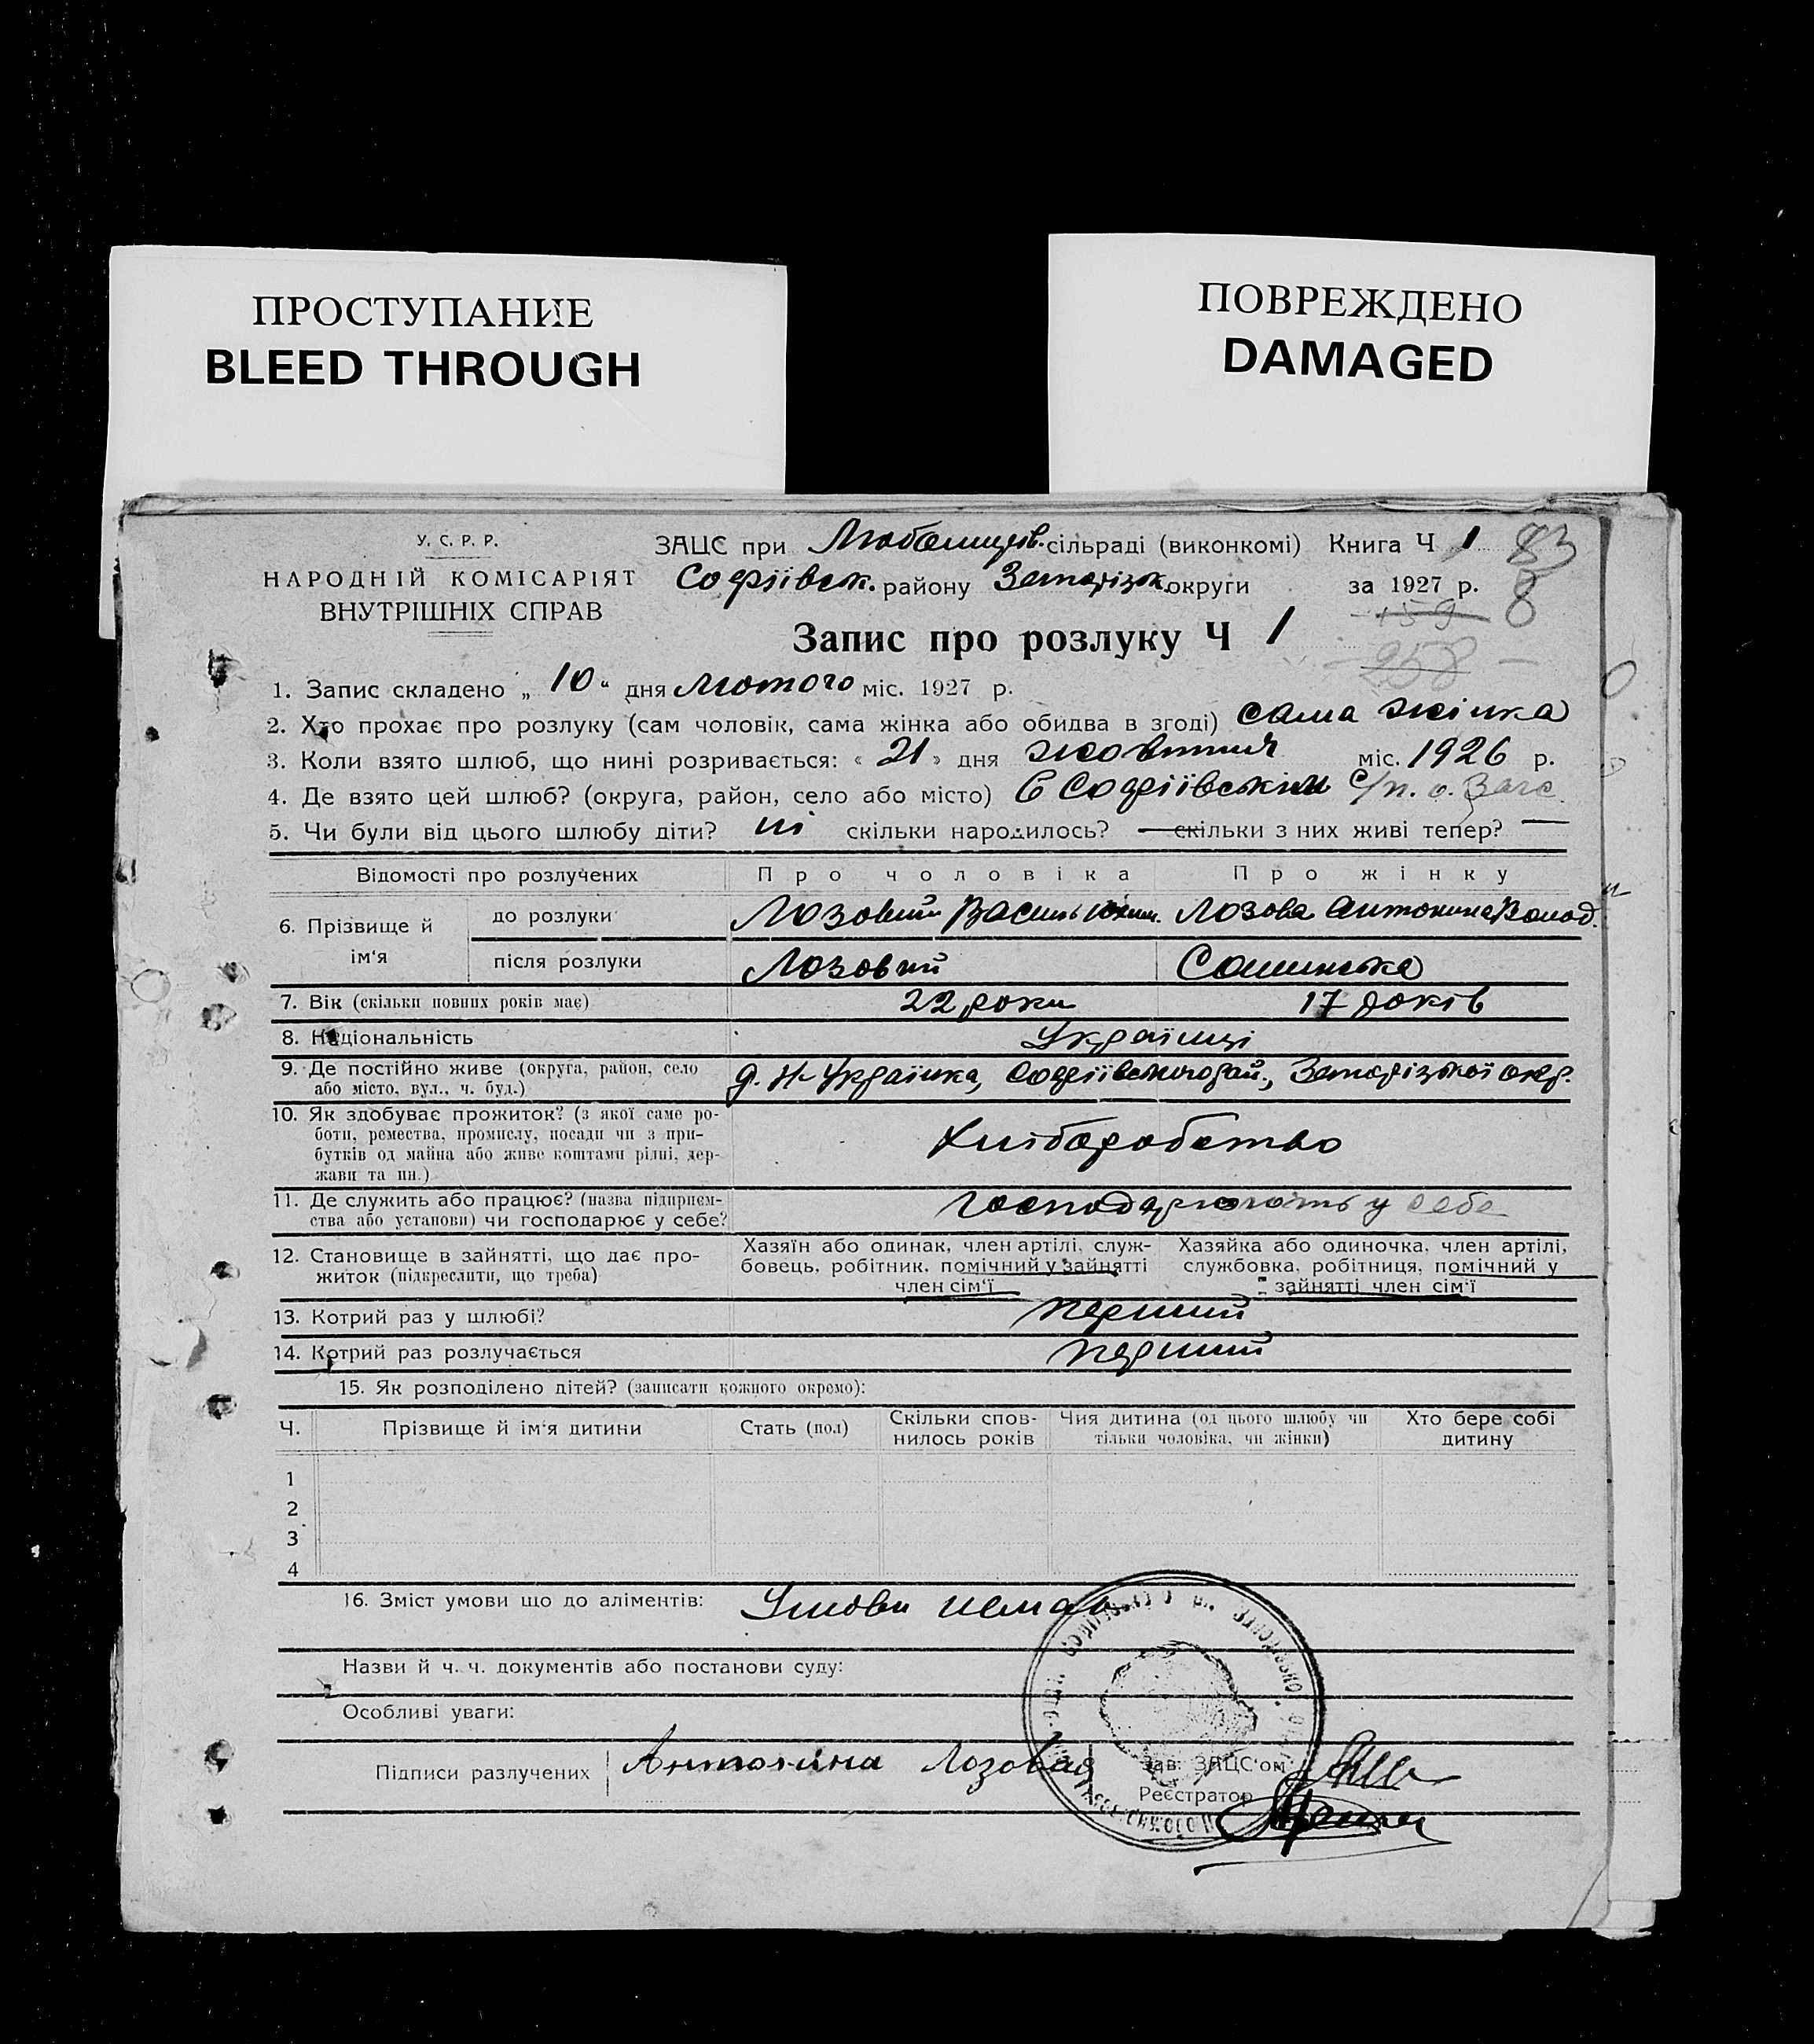 ПРОСТУПАНИЕ
BLEED THROUGH
ПОВРЕЖДЕНО
DAMAGED
У. С. Р. Р.
НАРОДНІЙ КОМІСАРІЯТ
ВНУТРІШНІХ СПРАВ
ЗАЦС при сільраді (виконкомі) Книга Ч 1 83
Софіївськ. району Запорізьк. округи за 1927 р. 8
159
258
Запис про розлуку Ч 1
1. Запис складено „ 10 " дня лютого міс. 1927 р.
2. Хто прохає про розлуку (сам чоловік, сама жінка або обидва в згоді) сама жінка
3. Коли взято шлюб, що нині розривається: « 21 » дня жовтня міс. 1926 р.
4. Де взято цей шлюб? (округа, район, село або місто) В Софіївськім Загс
5. Чи були від цього шлюбу діти? ні скільки народилось? — скільки з них живі тепер? —
Відомості про розлучених Про чоловіка Про жінку
6. Прізвище й ім'я до розлуки Лозовий Василь Лозова Антонина Волод.
після розлуки Лозовий Сошинська
7. Вік (скільки повних років має) 22 роки 17 років
8. Національність Українці
9. Де постійно живе (округа, район, село
або місто, вул., ч. буд.) д. Н-Українка, Софіївського рай., Запорізької окр.
10. Як здобуває прожиток? (з якої саме ро-
боти, ремества, промислу, посади чи з при-
бутків од майна або живе коштами рідні, дер-
жави та ин.) Хліборобство
11. Де служить або працює? (назва підприєм-
ства або установи) чи господарює у себе? господарюють у себе
12. Становище в зайнятті, що дає про-
житок (підкреслити, що треба)
Хазяїн або одинак, член артілі, служ-
бовець, робітник, помічний у зайнятті
член сім'ї
Хазяйка або одиночка, член артілі,
службовка, робітниця, помічний у
зайнятті член сім'ї
13. Котрий раз у шлюбі? перший
14. Котрий раз розлучається перший
15. Як розподілено дітей? (записати кожного окремо):
Ч. Прізвище й ім'я дитини Стать (пол) Скільки спов-
нилось років Чия дитина (од цього шлюбу чи
тільки чоловіка, чи жінки) Хто бере собі
дитину
1
2
3
4
16. Зміст умови що до аліментів: Умови немає
Назви й ч. ч. документів або постанови суду:
Особливі уваги:
Підписи разлучених Антонина Лозовая Зав. ЗАЦС'ом
Реєстратор